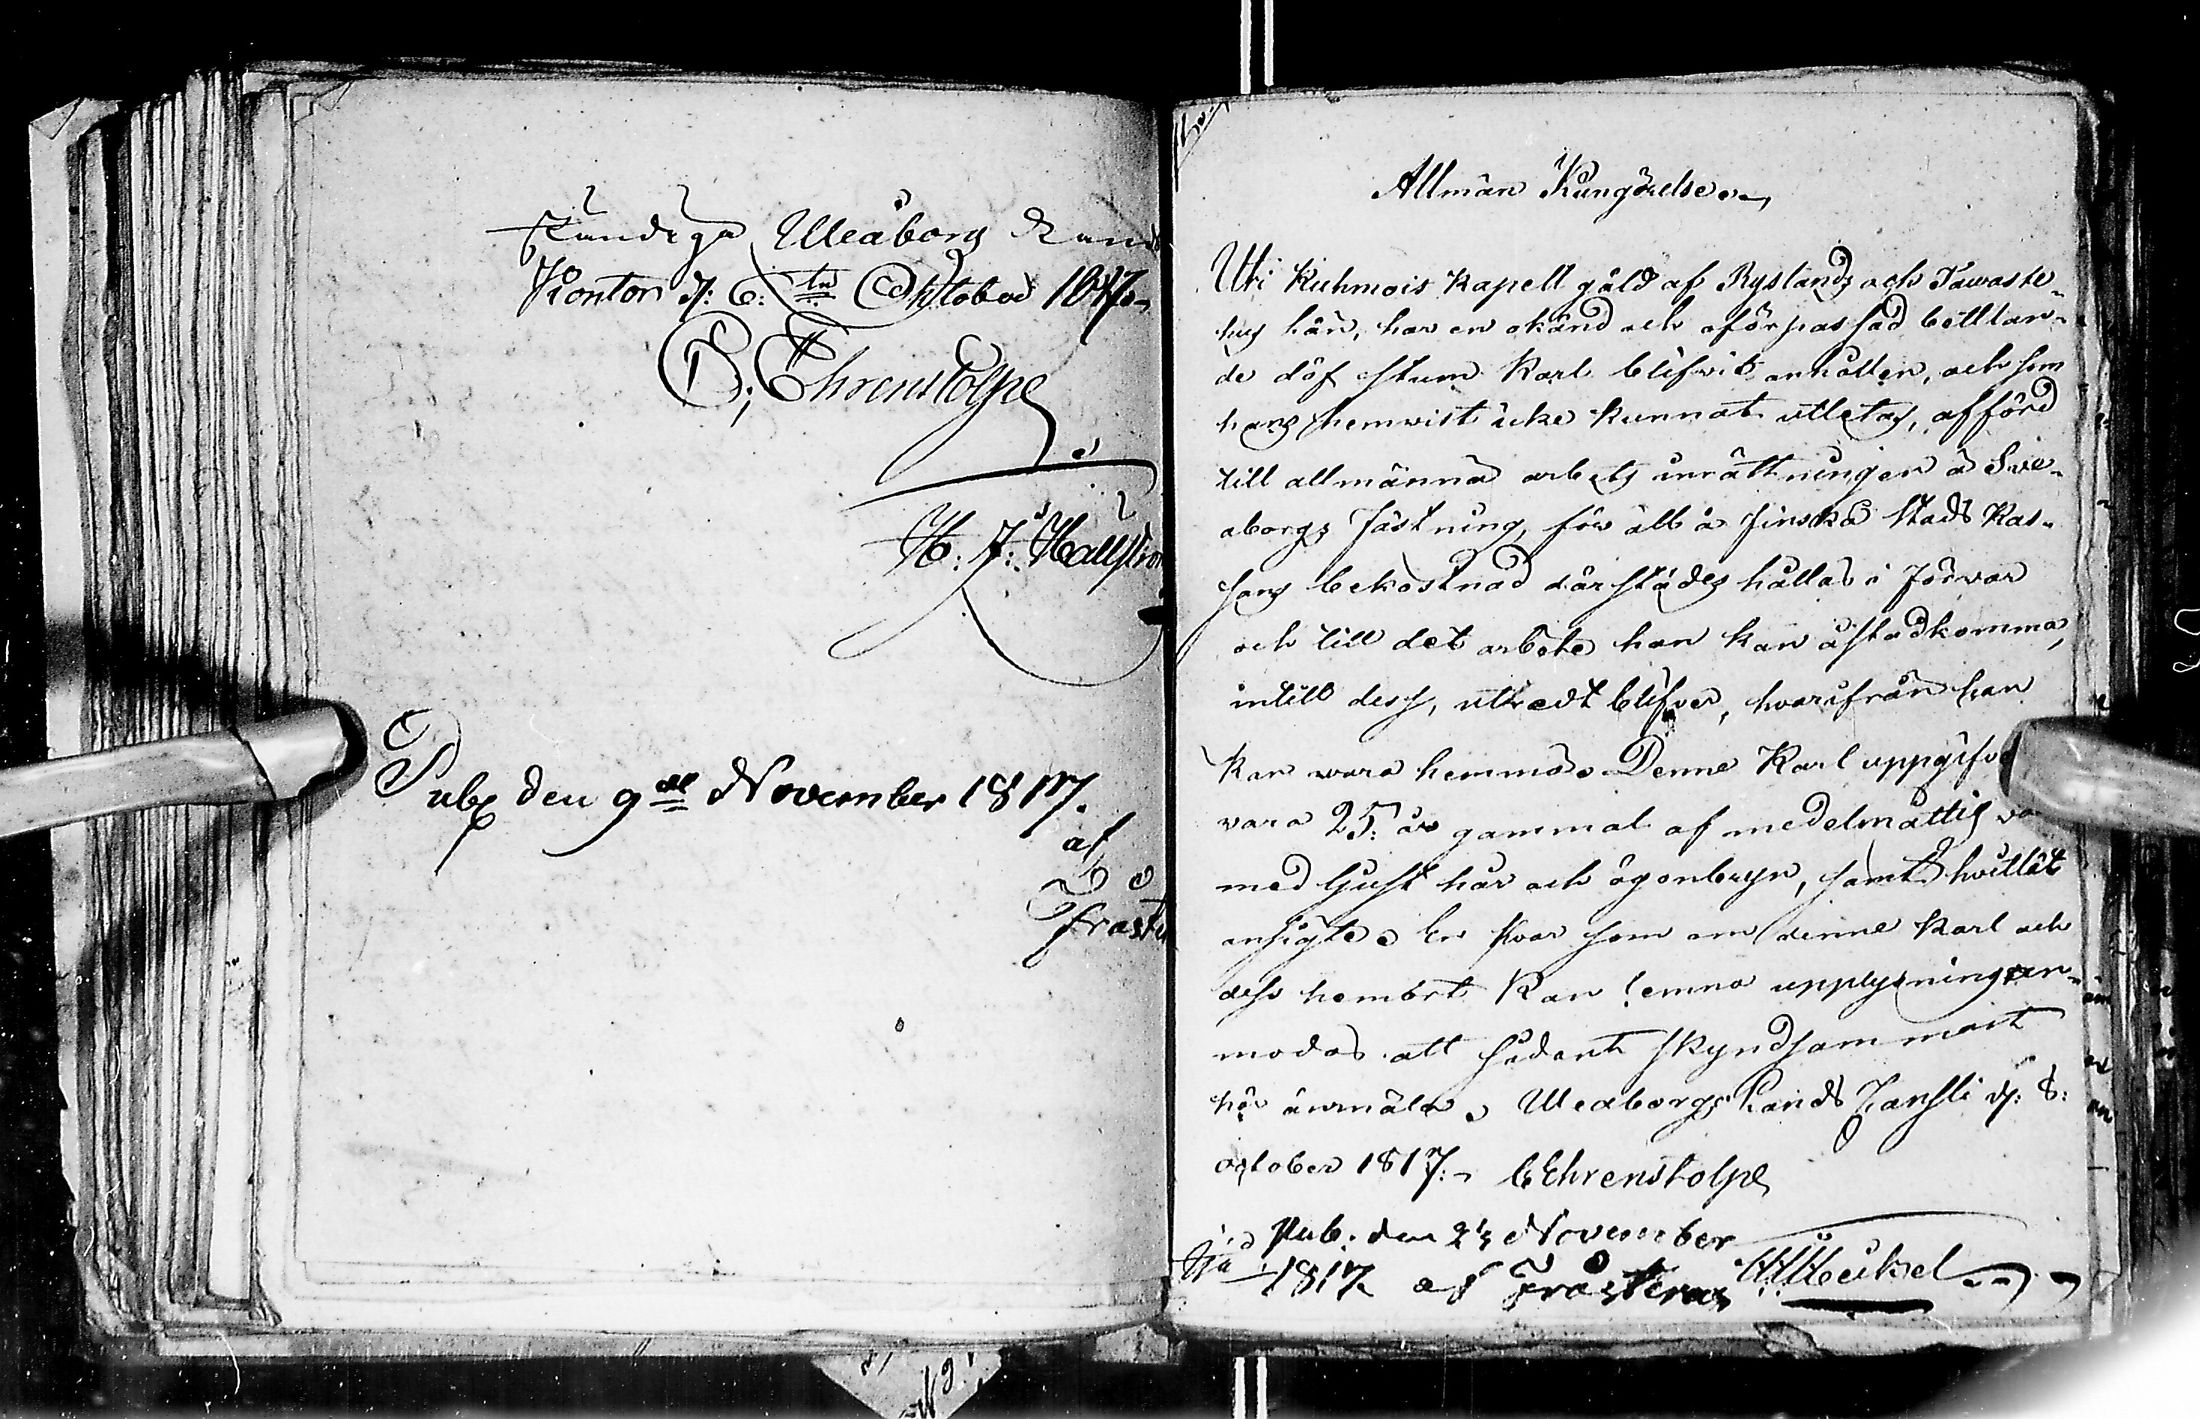 Kundiga Uleåborg Lands
Kontor d: 6:te October 1817.
C; Ehrenstolpe
H. J: Hallströ
Pub den 9de November 1817.
af
Frost
Allmän Kungörelse.
Uti Kuhmois Kapell gäld af Nyslands och Tawaste-
hus län, har en okänd och oförpassad bettlan-
de döf stum Karl blifvit anhållen, och som
hans hemvist icke kunnat utletas, afförd
till allmänna arbets inrättningen å Svea-
borgs Fästning, för att å Finska Stads Kas-
sans bekostnad därstädes hållas i Förvar
och till det arbete han kan åstadkomma,
intill dess, utredt blifver, hvarifrån han
kan vara hemma. Denne Karl uppgifve
vara 25: år gammal af medelmåttig vä
med ljust hår och ögonbryn, samt hvitlät
ansigte. En hvar som om denne Karl och
dess hemort kan lemna upplysning an-
modas att sådant skyndsammast
här anmäla. Uleaborgs Lands Cansli d: 8:
october 1817. C Ehrenstolpe
Pub. den 23 November
1817 af Frosterus